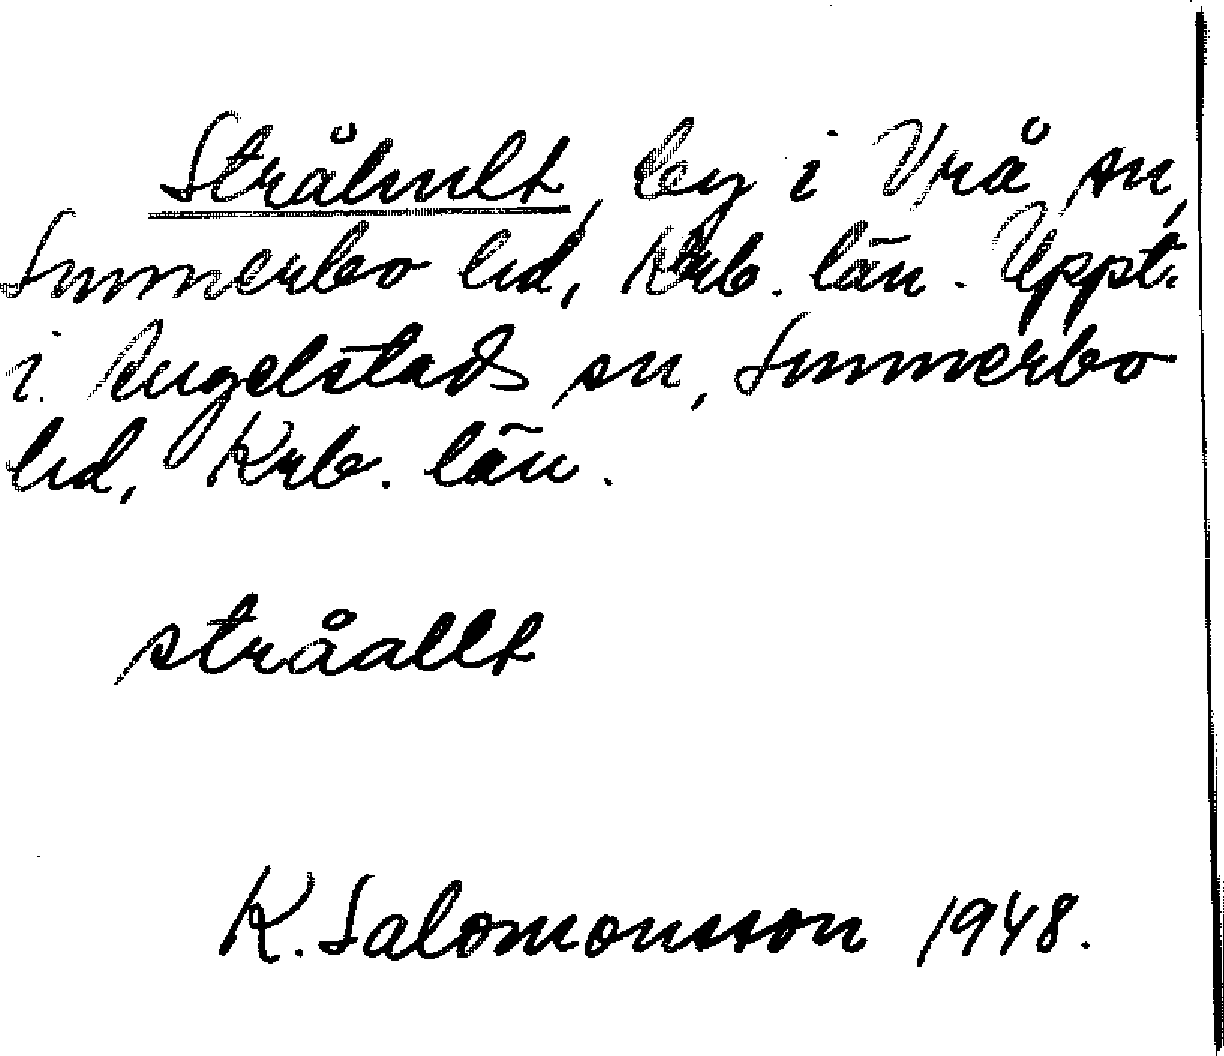 Stråhult, by i Vrå sn,
Sunnerbo hd, Krb. län. Uppt.
i Angelstad sn, Sunnerbo
hd, Krb. län.
stråallt
K. Salomonsson 1948.